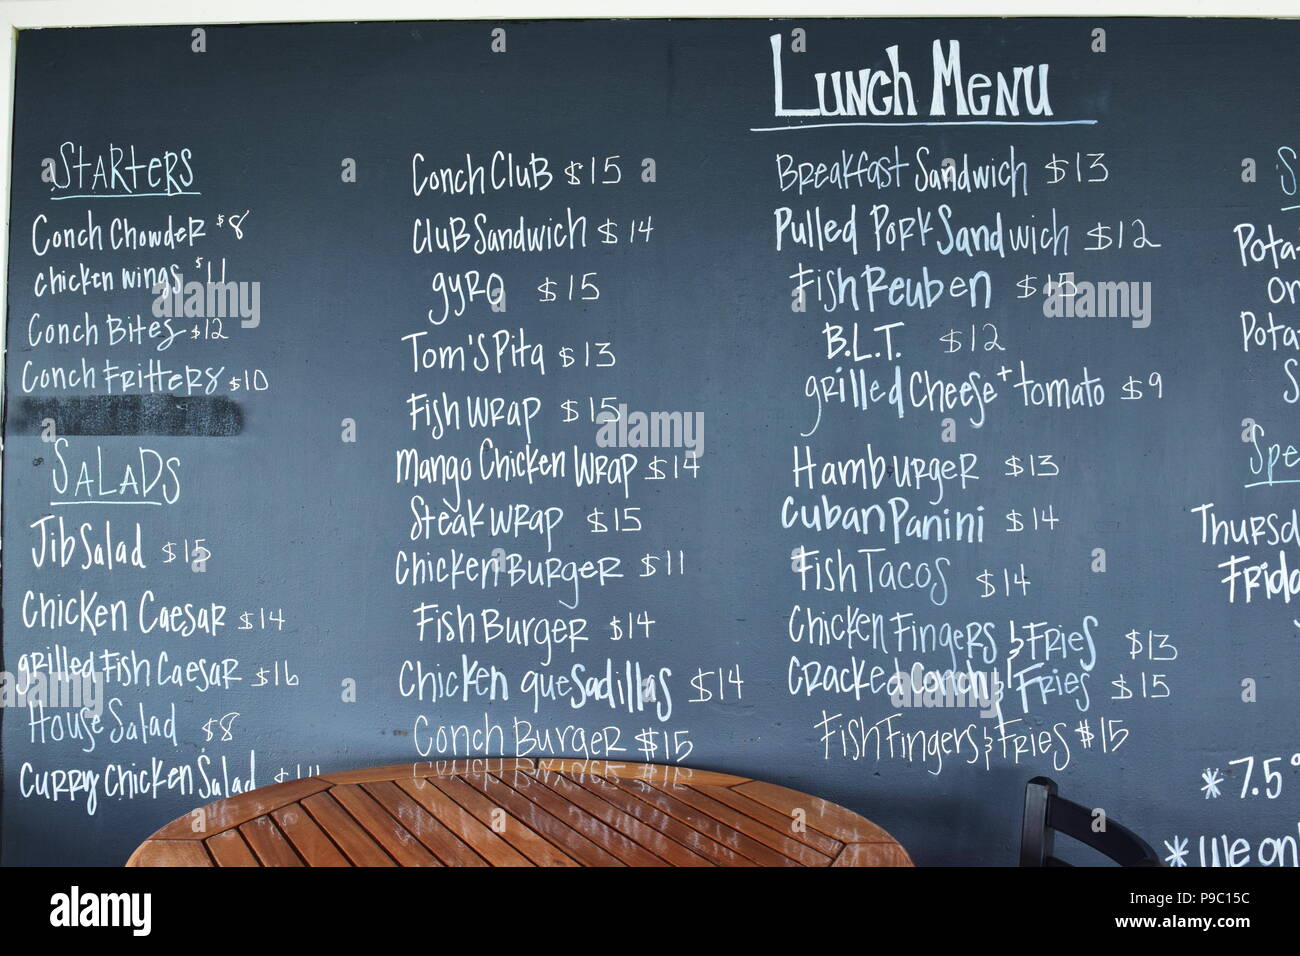 Lunch Menu
Starters
Conch Chowder $8
chicken wings $11
Conch Bites $12
Conch Fritters $10
Salads
Jib Salad $15
Chicken Caesar $14
grilled Fish Caesar $16
House Salad $8
Curry Chicken Salad
Conch Club $15
Club Sandwich $14
gyro $15
Tom's Pita $13
Fish Wrap $15
Mango Chicken Wrap $14
Steak Wrap $15
Chicken Burger $11
Fish Burger $14
Chicken quesadillas $14
Conch Burger $15
Breakfast Sandwich $13
Pulled Pork Sandwich $12
Fish Reuben $15
B.L.T. $12
grilled Cheese + tomato $9
Hamburger $13
Cuban Panini $14
Fish Tacos $14
Chicken Fingers & Fries $13
Cracked Conch & Fries $15
Fish Fingers & Fries $15
S
Pota
or
Pota
S
Spe
Thursd
Frida
*7.5%
*We on
alamy
Image ID: P9C15C
www.alamy.com